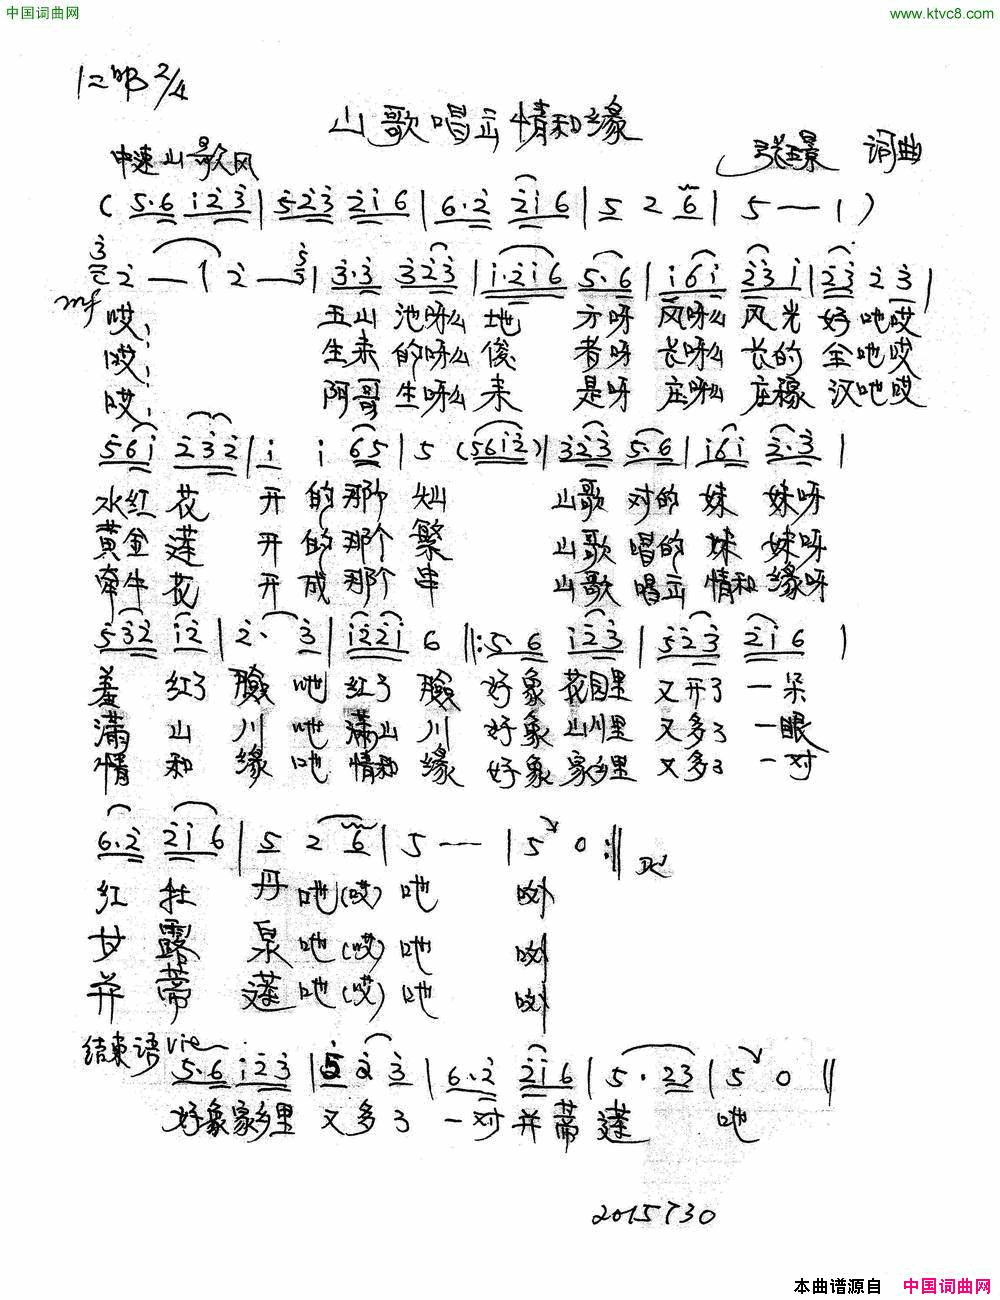 中国词曲网
www.ktvc8.com
1=bB 2/4
山歌唱出情和缘
中速山歌风
词曲
( 5·6 i23 | 523 2i6 | 6·2 2i6 | 5 2 6 | 5 — — | )
3 2 — | 2 — 5 3 | 3·3 323 | i·2i6 5·6 | i6i 23i | 23 2 3 |
mf
哎, 玉山池呀么地 方呀 风呀么风光好吔哎
哎, 生来的呀么俊 者呀 长呀么长的全吔哎
哎, 阿哥生呀么来 是呀 庄呀么庄稼汉吔哎
56i 232 | i i 65 | 5 (56i2) | 323 5·6 | i6i 2·3 |
水红花 开的那个灿 山歌对的妹妹呀
黄金莲 开的那个繁 山歌唱的妹妹呀
牵牛花 开成那个串 山歌唱出情和缘呀
532 i2 | 2· 3 | i22i 6 ‖: 5·6 i23 | 523 2i6 |
羞红了脸吔红了脸 好象花园里又开了一朵
满山川吔满山川 好象山川里又多了一眼
情和缘吔情和缘 好象家乡里又多了一对
6·2 2i6 | 5 2 6 | 5 — — | 5 0 :‖ DC
红牡丹吔(哎)吔 呦
甘露泉吔(哎)吔 呦
并蒂莲吔(哎)吔 呦
结束语
5·6 i23 | 5 2 3 | 6·2 2i6 | 5·23 | 5 0 ‖
好象家乡里又多了一对并蒂莲 吔
2015730
本曲谱源自 中国词曲网